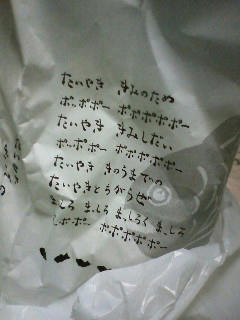 たいやき きみのため
ポッポポー ポポポポポー
たいやき きみしだい
ポッポポー ポポポポポー
たいやき きのうまでの
たいやきとちがうぜ
まっしろ まっしろ まっしろく まっしろ
ポポー ポポポポポー